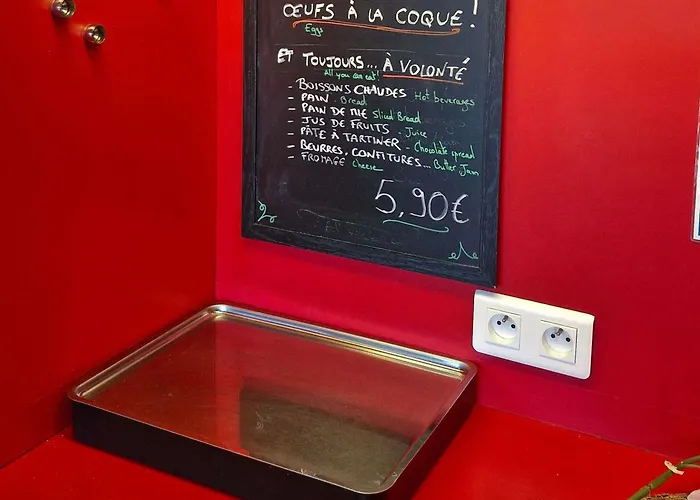 ŒUFS À LA COQUE !
Eggs
ET TOUJOURS... À VOLONTÉ
All you can eat!
- BOISSONS CHAUDES Hot beverages
- PAIN - Bread
- PAIN DE MIE Sliced Bread
- JUS DE FRUITS - Juice
- PÂTE À TARTINER - Chocolate spread
- BEURRES, CONFITURES... Butter Jam
- FROMAGE Cheese
5,90€